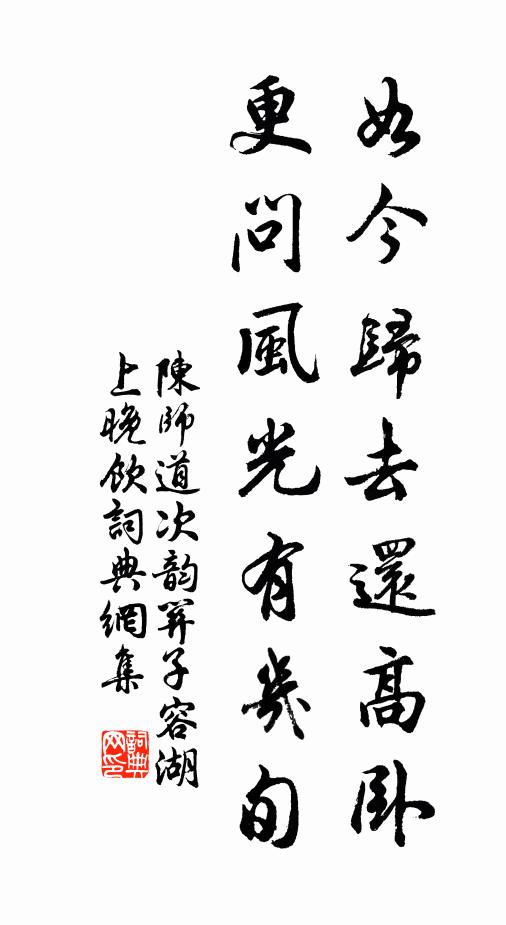 如今歸去還高卧
更問風光有幾旬
陳師道次韵關子容湖
上晚飲詞典網集
詞典網印